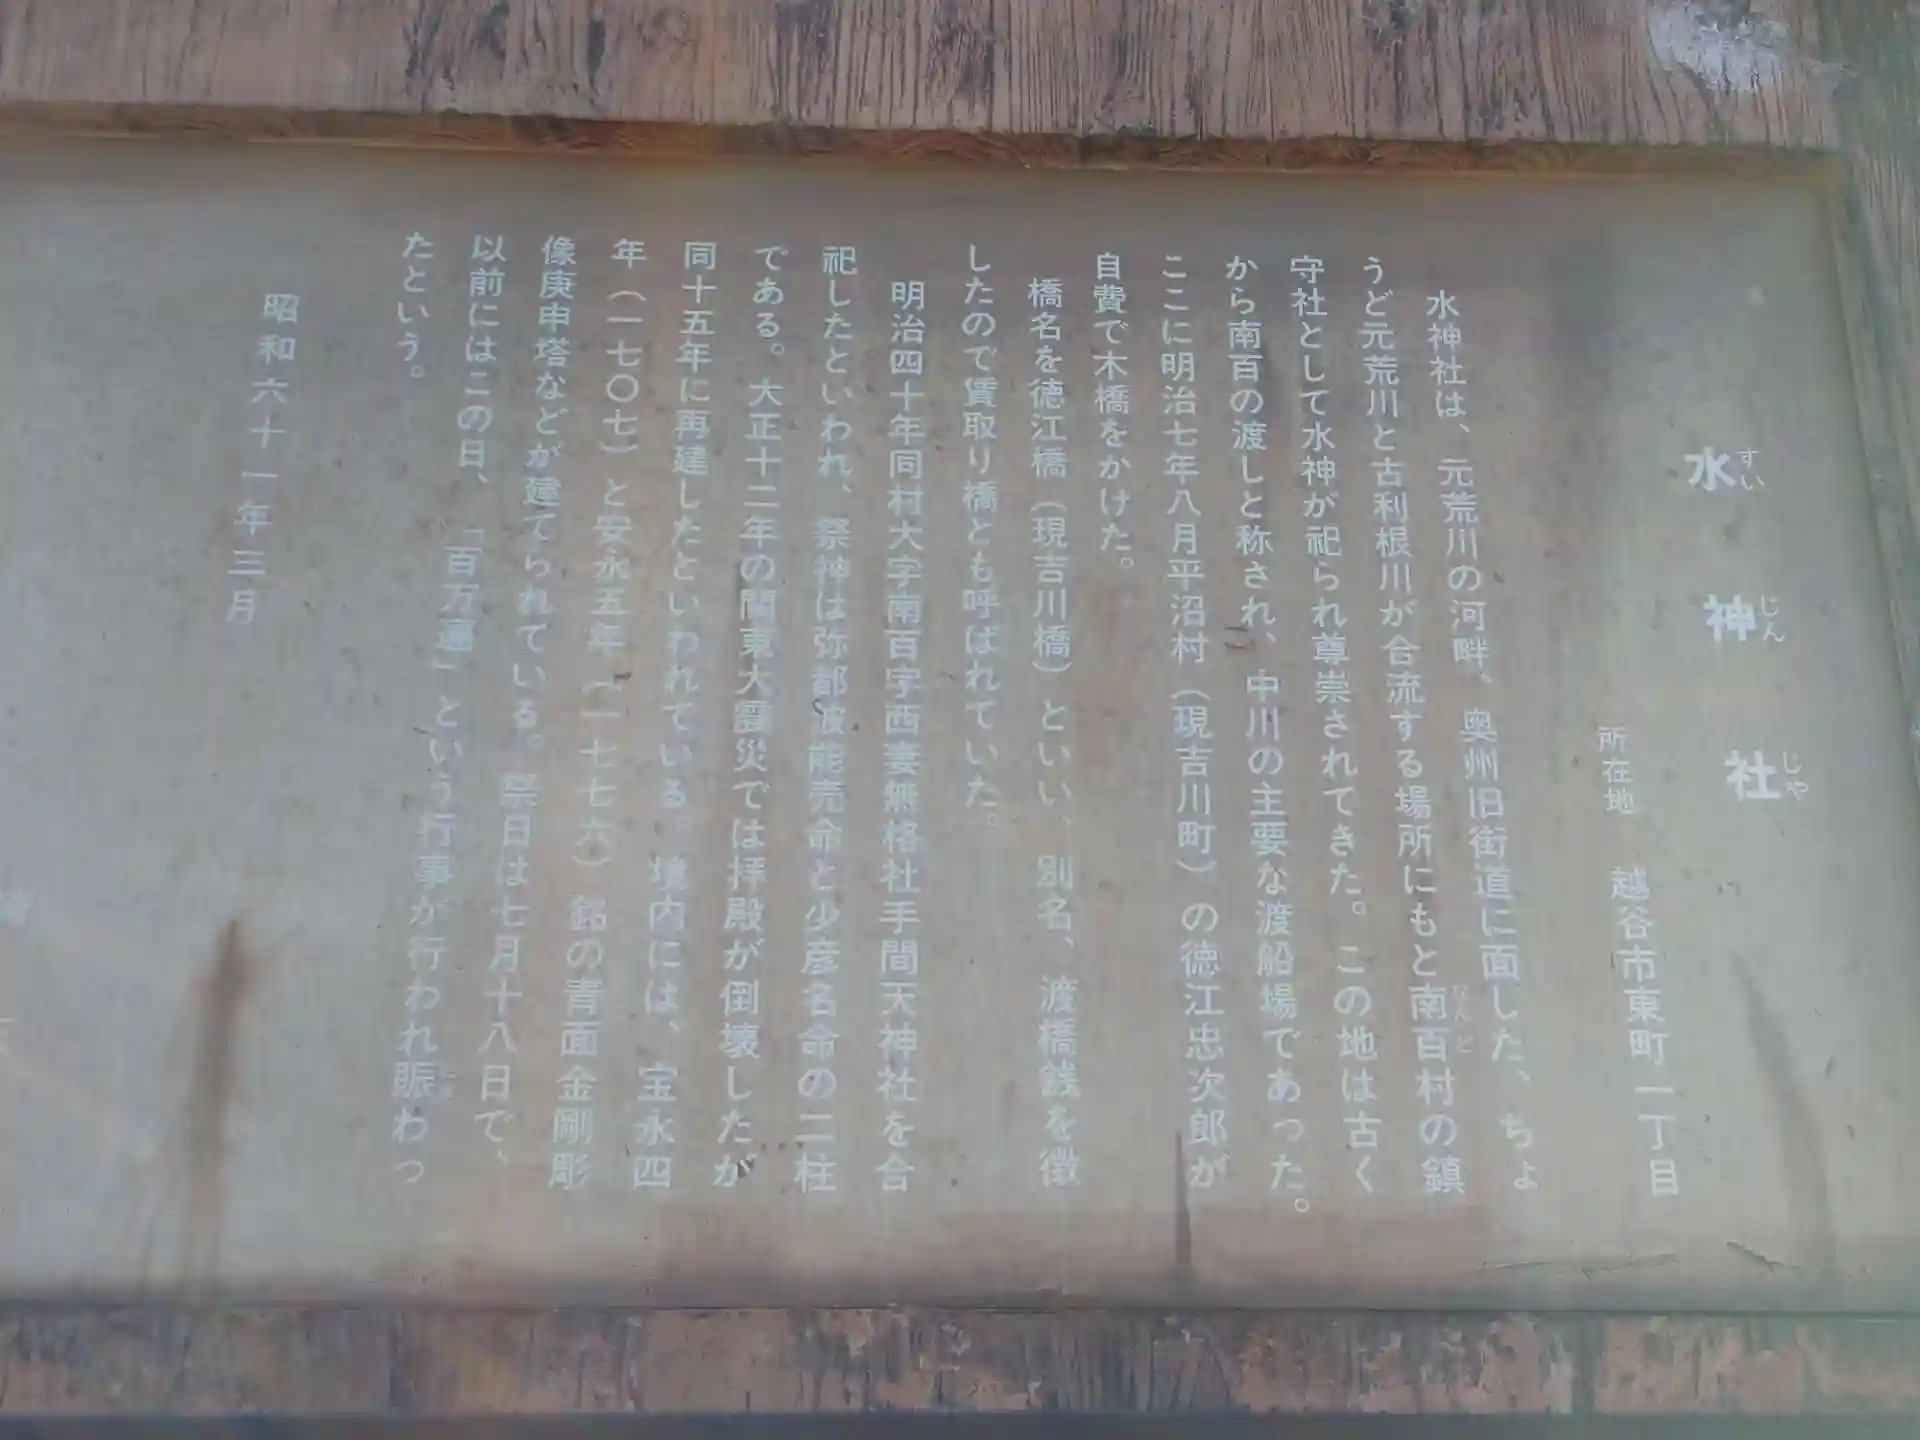 水神社
すいじんじゃ
所在地　越谷市東町一丁目
水神社は、元荒川の河畔、奥州旧街道に面した、ちょ
うど元荒川と古利根川が合流する場所にもと南百村の鎮
守社として水神が祀られ尊崇されてきた。この地は古く
から南百の渡しと称され、中川の主要な渡船場であった。
ここに明治七年八月平沼村（現吉川町）の徳江忠次郎が
自費で木橋をかけた。
橋名を徳江橋（現吉川橋）といい、別名、渡橋銭を徴
したので賃取り橋とも呼ばれていた。
明治四十年同村大字南百字西妻無格社手間天神社を合
祀したといわれ、祭神は弥都波能売命と少彦名命の二柱
である。大正十二年の関東大震災では拝殿が倒壊したが
同十五年に再建したといわれている。境内には、宝永四
年（一七〇七）と安永五年（一七七六）銘の青面金剛彫
像庚申塔などが建てられている。祭日は七月十八日で、
以前にはこの日、「百万遍」という行事が行われ賑わっ
たという。
昭和六十一年三月